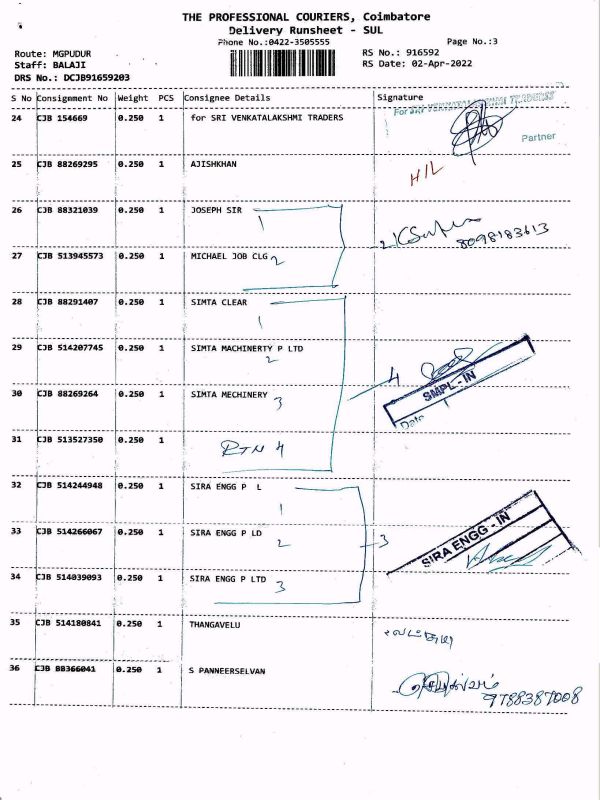 THE PROFESSIONAL COURIERS, Coimbatore
Delivery Runsheet - SUL
Phone No.:0422-3505555
Page No.:3
Route: MGPUDUR
RS No.: 916592
Staff: BALAJI
RS Date: 02-Apr-2022
DRS No.: DCJB91659203
S No Consignment No Weight PCS Consignee Details Signature
24 CJB 154669 0.250 1 for SRI VENKATALAKSHMI TRADERS
For SRI VENKATALAKSHMI TRADERSS
Partner
25 CJB 88269295 0.250 1 AJISHKHAN
H/L
26 CJB 88321039 0.250 1 JOSEPH SIR
1
8098183613
27 CJB 513945573 0.250 1 MICHAEL JOB CLG 2
28 CJB 88291407 0.250 1 SIMTA CLEAR
1
29 CJB 514207745 0.250 1 SIMTA MACHINERTY P LTD
2
4
SMPL - IN
Date
30 CJB 88269264 0.250 1 SIMTA MECHINERY 3
31 CJB 513527350 0.250 1
RTN 4
32 CJB 514244948 0.250 1 SIRA ENGG P L
1
33 CJB 514266067 0.250 1 SIRA ENGG P LD
2
3
SIRA ENGG - IN
34 CJB 514039093 0.250 1 SIRA ENGG P LTD 3
35 CJB 514180841 0.250 1 THANGAVELU
36 CJB 88366041 0.250 1 S PANNEERSELVAN
9788387008